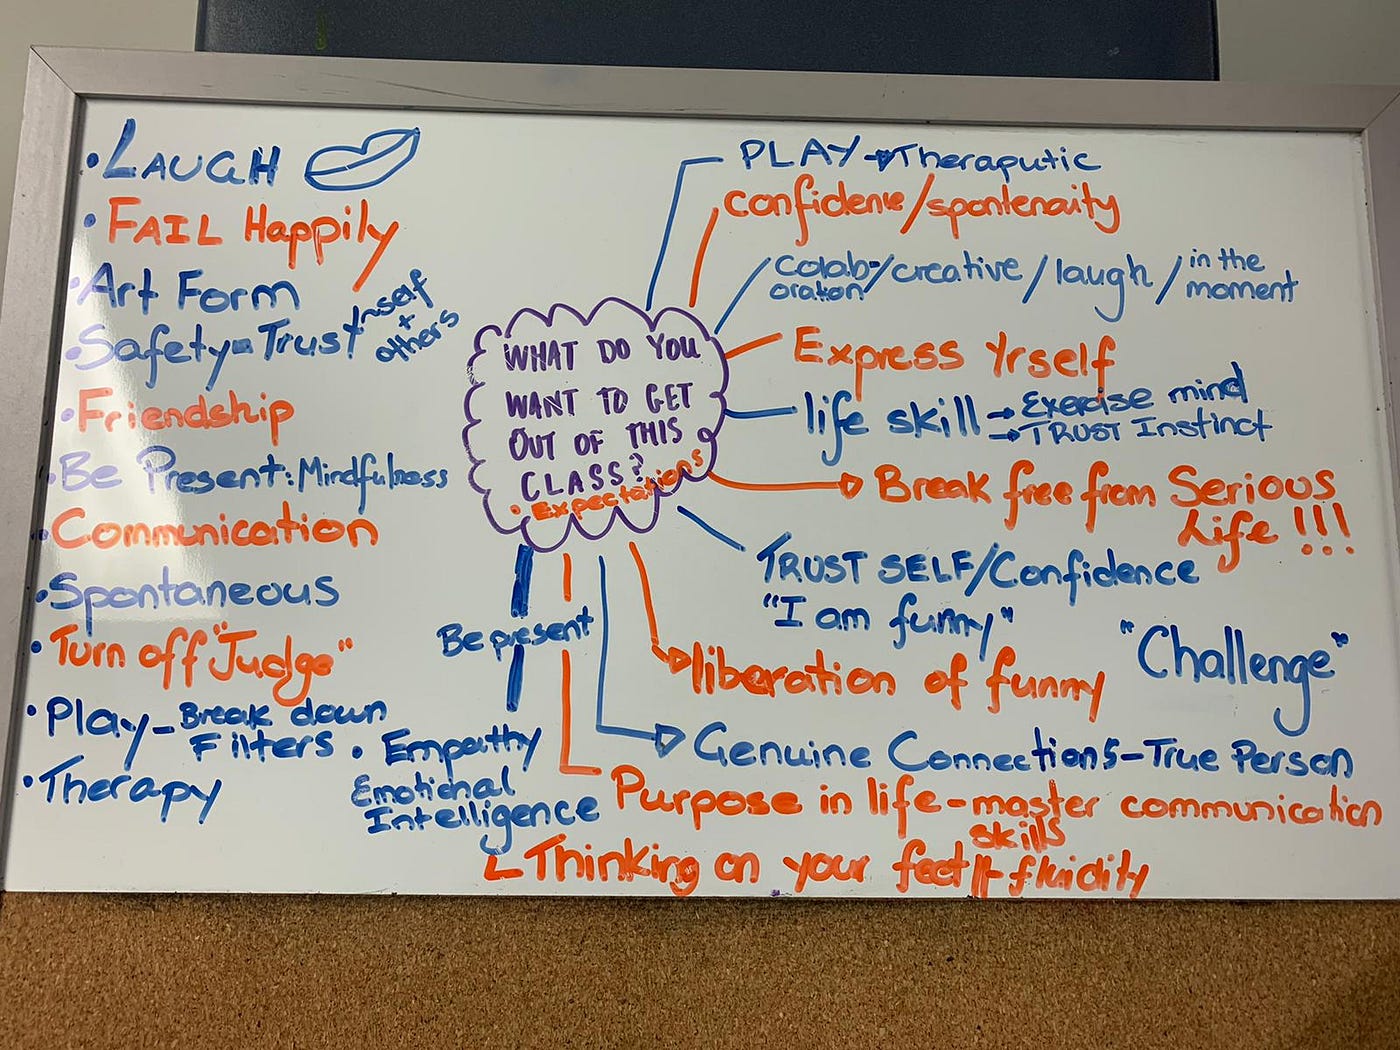 • LAUGH
• FAIL Happily
• Art Form
• Safety = Trust inself
+
others
• Friendship
• Be Present: Mindfulness
• Communication
• Spontaneous
• Turn off "Judge"
• Play - Break down
Filters
• Therapy
• Empathy
Emotional
Intelligence
WHAT DO YOU
WANT TO GET
OUT OF THIS
CLASS?
• Expectations
PLAY → Theraputic
confidence/spontenaity
colab-/creative/laugh/in the
oration moment
Express Yrself
life skill → Exercise mind
→ TRUST Instinct
Break free from Serious
Life!!!
TRUST SELF/Confidence
"I am funny"
"Challenge"
liberation of funny
Genuine Connections - True Person
Be present
Purpose in life - master communication
skills
Thinking on your feet - fluidity